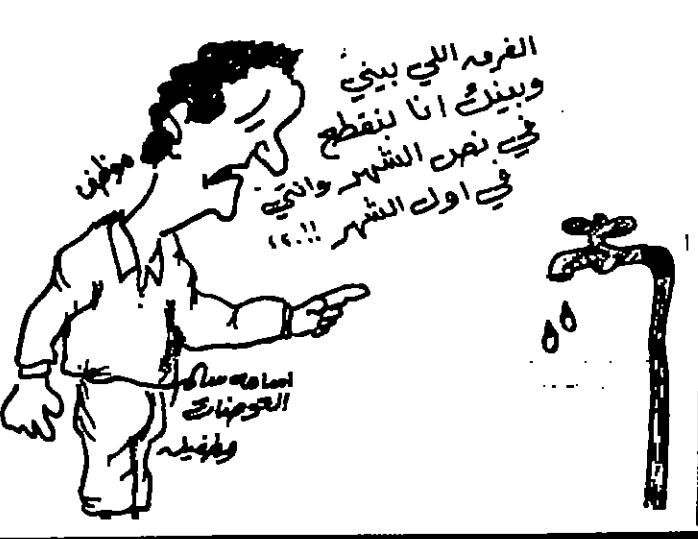 الفرق اللي بيني
وبينك انا بنقطع
في نص الشهر وانتي
في اول الشهر !!..؟؟
موظف
اسامه سالم
العوضات